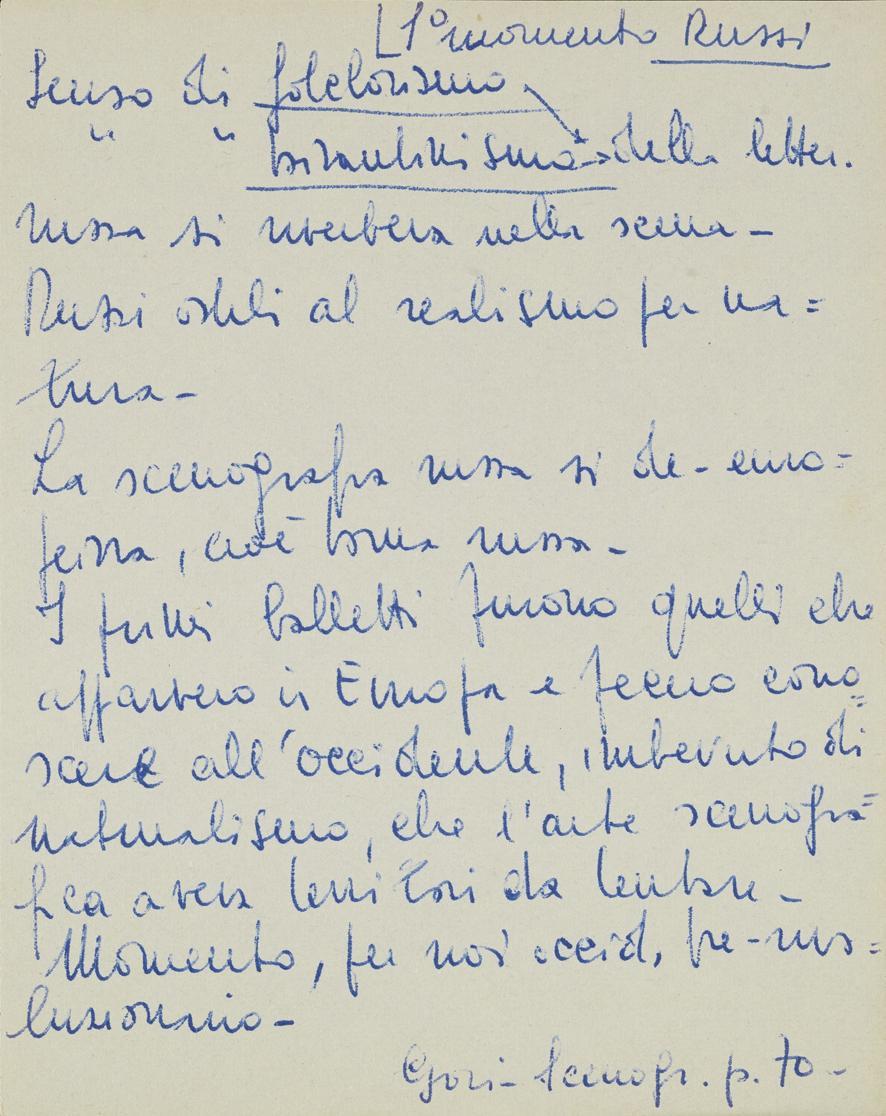 1º momento Russi
Senso di folclorismo
" " bizantinismo della letter.
russa si riverbera nella scena -
Russi ostili al realismo per na=
tura -
La scenografia russa si de-euro=
peizza, cioè torna russa -
I primi balletti furono quelli che
apparvero in Europa e fecero cono=
scere all'occidente, imbevuto di
naturalismo, che l'arte scenogra=
fica aveva territori da tentare -
Momento, per noi occid, pre-rivo=
luzionario -
Gori - Scenogr. p. 70 -